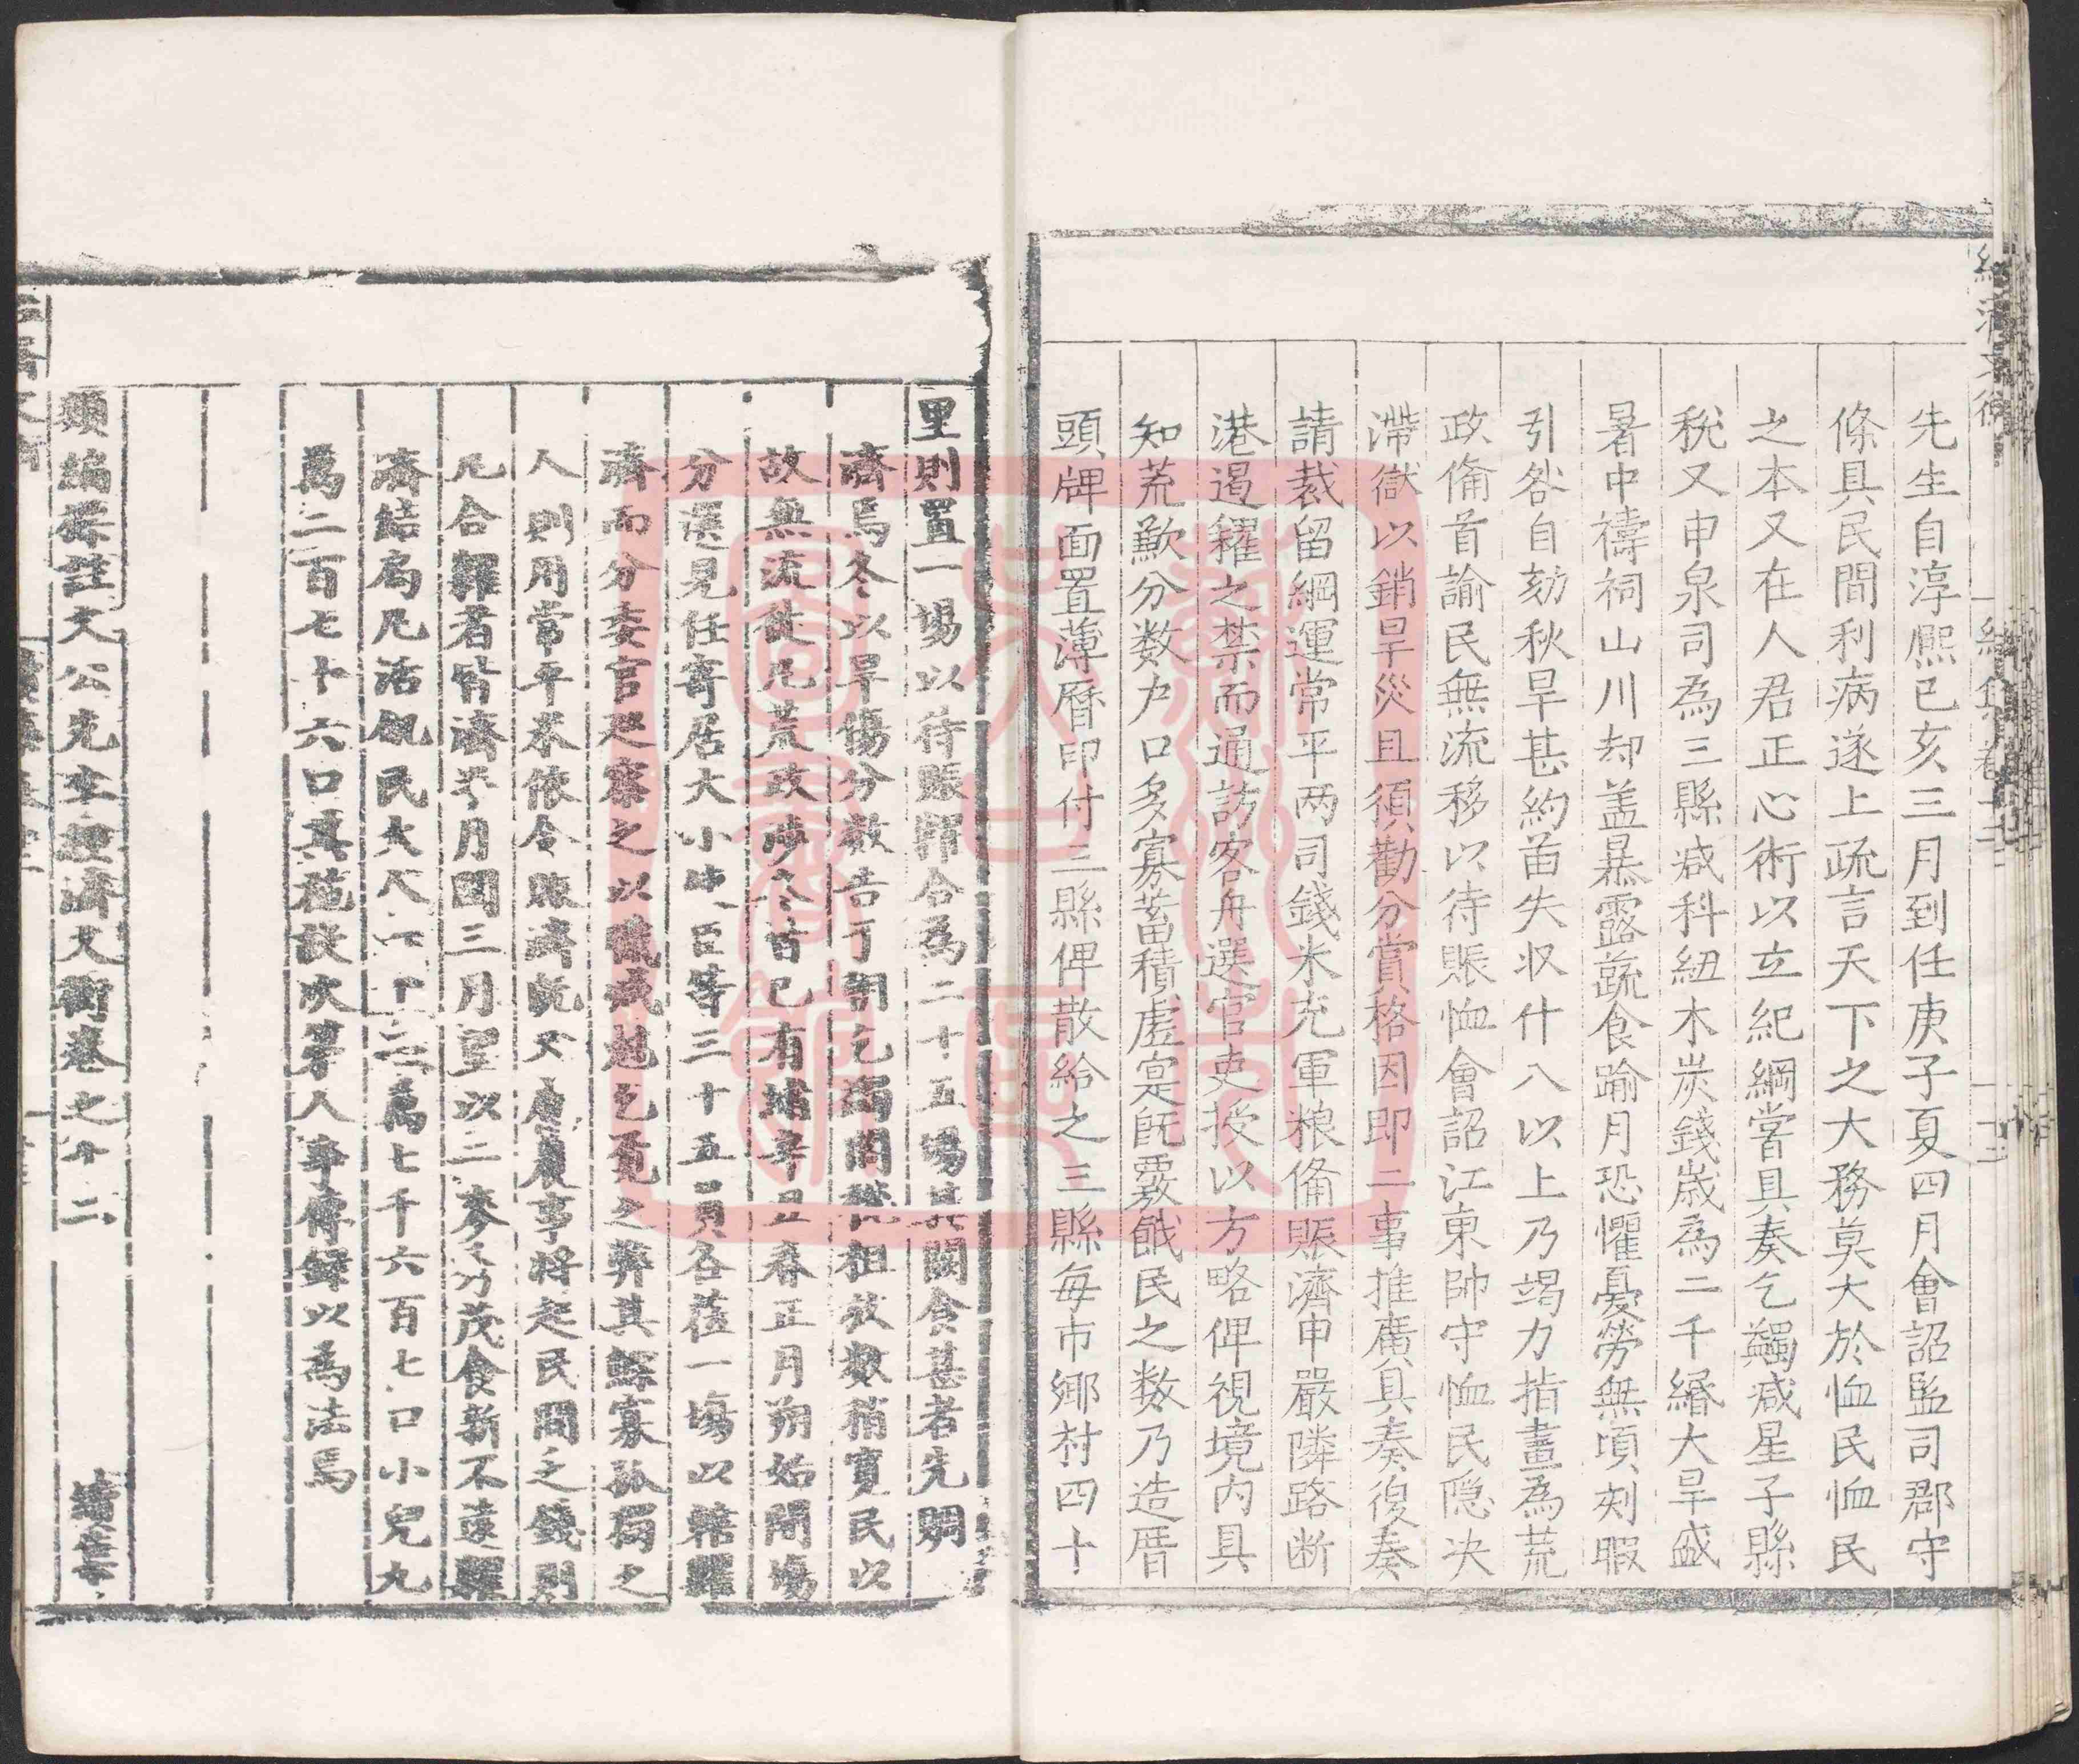 先生自淳熈已亥三月到任庚子夏四月會詔監司郡守
條具民間利病遂上疏言天下之大務莫大於恤民恤民
之本又在人君正心術以立紀綱嘗具奏乞蠲减星子縣
稅又申泉司為三縣减科紐木炭錢歳為二千緡大旱盛
暑中禱祠山川却盖暴露蔬食踰月恐懼憂勞無頃刻暇
引咎自劾秋旱甚約苗失収什八以上乃竭力措畫為荒
政俻首諭民無流移以待賑恤會詔江東帥守恤民隠决
滯獄以銷旱災且須勸分賞格因即二事推廣具奏復奏
請裁留綱運常平两司錢米充軍粮俻賑濟申嚴隣路断
港遏糴之禁而通訪客舟選官吏授以方略俾視境内具
知荒歉分数户口多寡蓄積虚寔旣覈餓民之数乃造暦
頭牌面置薄曆印付三縣俾散給之三縣每市郷村四十
里則置一場以待賑糶合為二十五場其闕食甚者先賙
濟焉冬以旱傷分数告于朝乞蠲閣秋租放数稍寛民以
故無流徙凡荒政陟冬皆已有緒辛丑春正月朔始開場
分選見任寄居大小使臣等三十五員各蒞一塲以轄糶
濟而分委官廵察之以戢减尅乞覔之弊其鰥寡孤獨之
人則用常平米依令賑濟既又慮農事将起民間乏錢則
凡合糶者皆濟半月閏三月望以二麥方茂食新不遠糶
濟結局凡活飢民大人一十二萬七千六百七口小兒九
萬二百七十六口其施設次第人争傳録以為法焉
類編標註文公先生經濟文衡巻之十二
續集